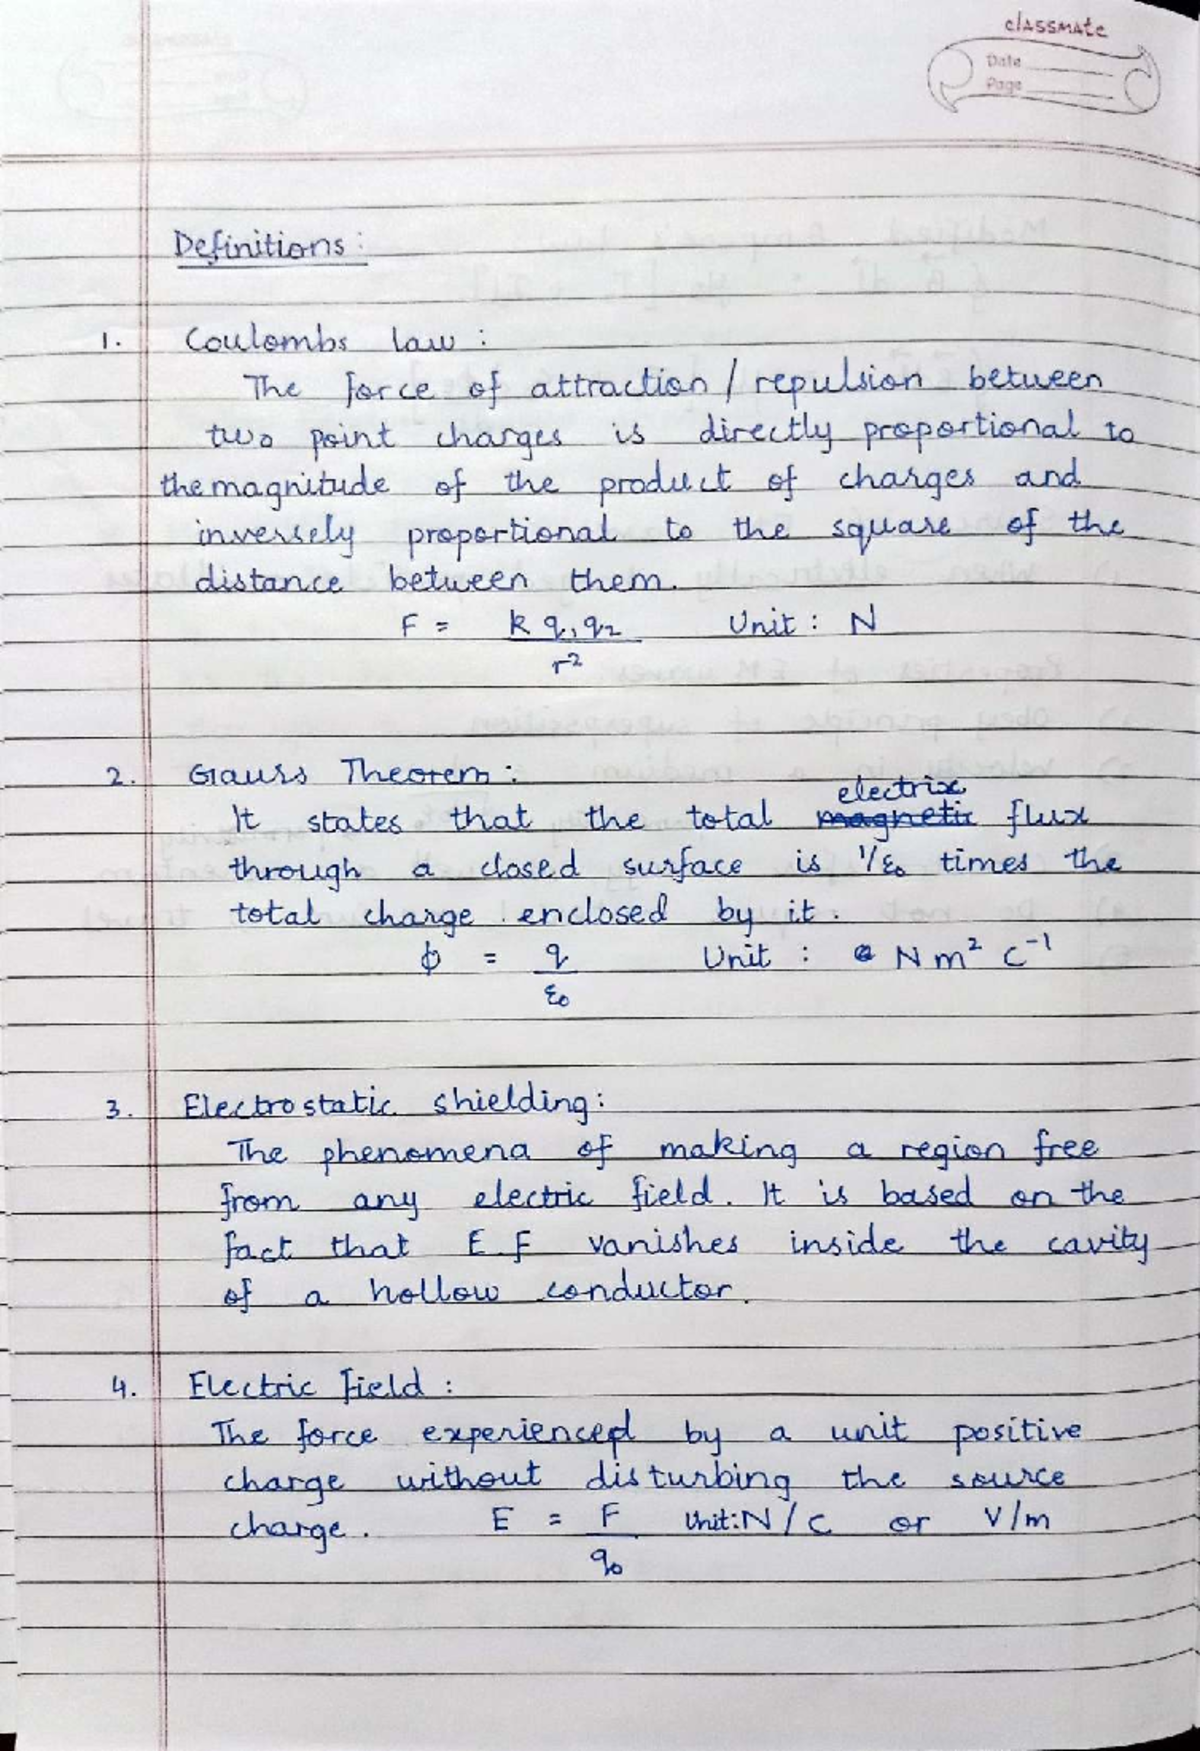 classmate
Date
Page
Definitions:
1. Coulombs law:
The force of attraction / repulsion between
two point charges is directly proportional to
the magnitude of the product of charges and
inversely proportional to the square of the
distance between them.
F = k q₁q₂ Unit: N
r²
2. Gauss Theorem:
electric
It states that the total magnetic flux
through a closed surface is 1/ε₀ times the
total charge enclosed by it.
ϕ = q Unit: N m² C⁻¹
ε₀
3. Electrostatic shielding:
The phenomena of making a region free
from any electric field. It is based on the
fact that E.F vanishes inside the cavity
of a hollow conductor.
4. Electric Field:
The force experienced by a unit positive
charge without disturbing the source
charge. E = F Unit: N/C or V/m
q₀